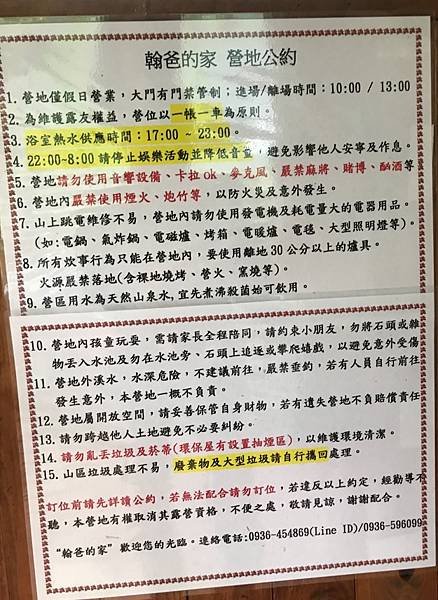 翰爸的家 營地公約
1. 營地僅假日營業，大門有門禁管制；進場/離場時間：10:00 / 13:00
2. 為維護露友權益，營位以一帳一車為原則。
3. 浴室熱水供應時間：17:00 ~ 23:00。
4. 22:00~8:00 請停止娛樂活動並降低音量，避免影響他人安寧及作息。
5. 營地請勿使用音響設備、卡拉 ok、麥克風、嚴禁麻將、賭博、酗酒等
6. 營地內嚴禁使用煙火、炮竹等，以防火災及意外發生。
7. 山上跳電維修不易，營地內請勿使用發電機及耗電量大的電器用品。
(如:電鍋、氣炸鍋、電磁爐、烤箱、電暖爐、電毯、大型照明燈等)。
8. 所有炊事行為只能在營地內，要使用離地 30 公分以上的爐具。
火源嚴禁落地(含裸地燒烤、營火、窯燒等)。
9. 營區用水為天然山泉水,宜先煮沸殺菌始可飲用。
10. 營地內孩童玩耍，需請家長全程陪同，請約束小朋友，勿將石頭或雜
物丟入水池及勿在水池旁、石頭上追逐或攀爬嬉戲，以避免意外受傷
11. 營地外溪水，水深危險，不建議前往，嚴禁垂釣，若有人員自行前往
發生意外，本營地一概不負責。
12. 營地屬開放空間，請妥善保管自身財物，若有遺失營地不負賠償責任
13. 請勿跨越他人土地避免不必要糾紛。
14. 請勿亂丟垃圾及菸蒂(環保屋有設置抽煙區)，以維護環境清潔。
15. 山區垃圾處理不易，廢棄物及大型垃圾請自行攜回處理。
訂位前請先詳讀公約，若無法配合請勿訂位，若違反以上約定，經勸導不
聽，本營地有權取消其露營資格，不便之處，敬請見諒，謝謝配合。
“翰爸的家”歡迎您的光臨。連絡電話:0936-454869(Line ID)/0936-596099